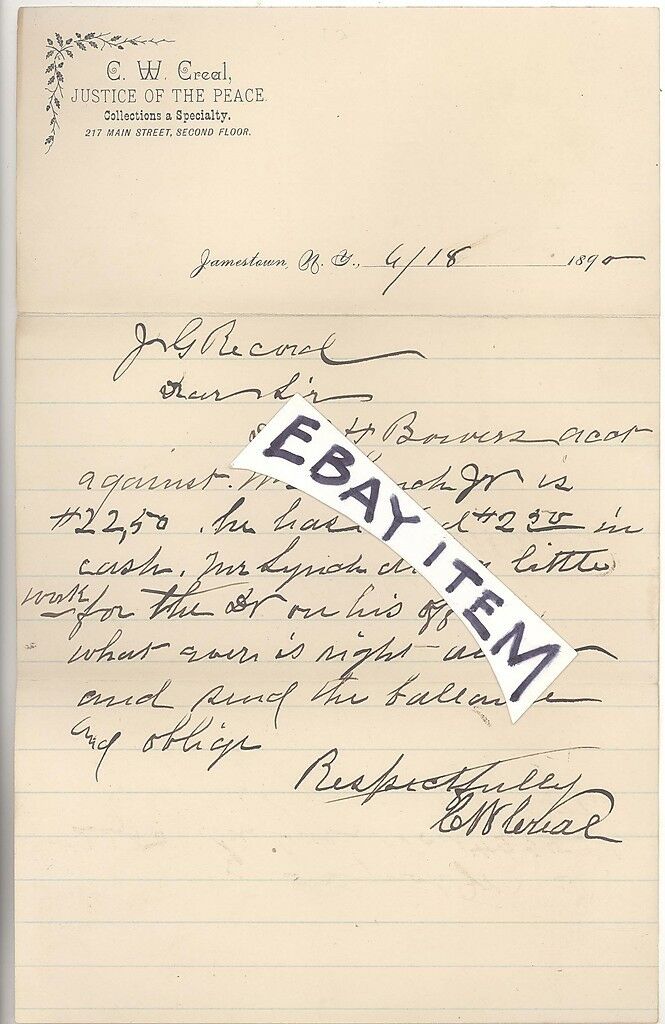 C. W. Creal,
JUSTICE OF THE PEACE.
Collections a Specialty.
217 MAIN STREET, SECOND FLOOR.
Jamestown, N. Y., 6/18 1890
J G Record
Dear Sir
H Bowers acct
against Jr is
#22,50 he has #2 50 in
cash. Mr Lynch a little
work for the Dr on his
what ever is right
and send the ballance
and oblige
Respectfully
C W Creal
EBAY ITEM